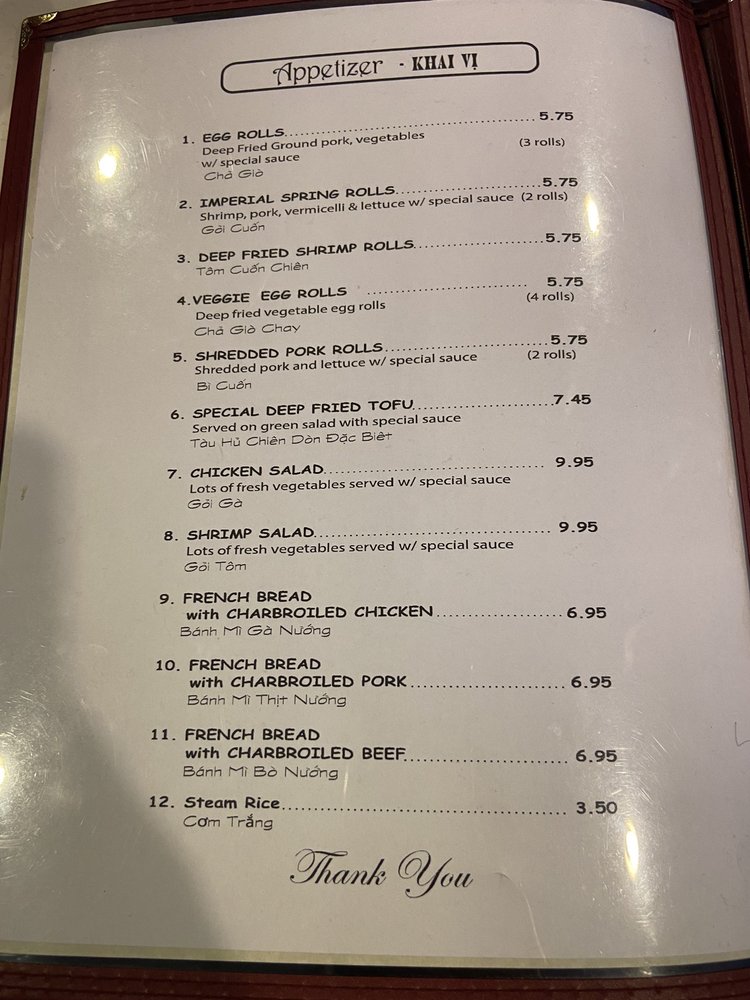 Appetizer - KHAI VỊ
1. EGG ROLLS..................................................5.75
Deep Fried Ground pork, vegetables (3 rolls)
w/ special sauce
Chả Giò
2. IMPERIAL SPRING ROLLS..............................5.75
Shrimp, pork, vermicelli & lettuce w/ special sauce (2 rolls)
Gỏi Cuốn
3. DEEP FRIED SHRIMP ROLLS..........................5.75
Tôm Cuốn Chiên
4.VEGGIE EGG ROLLS ................................ 5.75
Deep fried vegetable egg rolls (4 rolls)
Chả Giò Chay
5. SHREDDED PORK ROLLS.................................5.75
Shredded pork and lettuce w/ special sauce (2 rolls)
Bì Cuốn
6. SPECIAL DEEP FRIED TOFU............................7.45
Served on green salad with special sauce
Tàu Hủ Chiên Dòn Đặc Biêt
7. CHICKEN SALAD............................................ 9.95
Lots of fresh vegetables served w/ special sauce
Gỏi Gà
8. SHRIMP SALAD............................................... 9.95
Lots of fresh vegetables served w/ special sauce
Gỏi Tôm
9. FRENCH BREAD
with CHARBROILED CHICKEN......................... 6.95
Bánh Mì Gà Nướng
10. FRENCH BREAD
with CHARBROILED PORK.............................. 6.95
Bánh Mì Thịt Nướng
11. FRENCH BREAD
with CHARBROILED BEEF................................ 6.95
Bánh Mì Bò Nướng
12. Steam Rice...................................................... 3.50
Cơm Trắng
Thank You